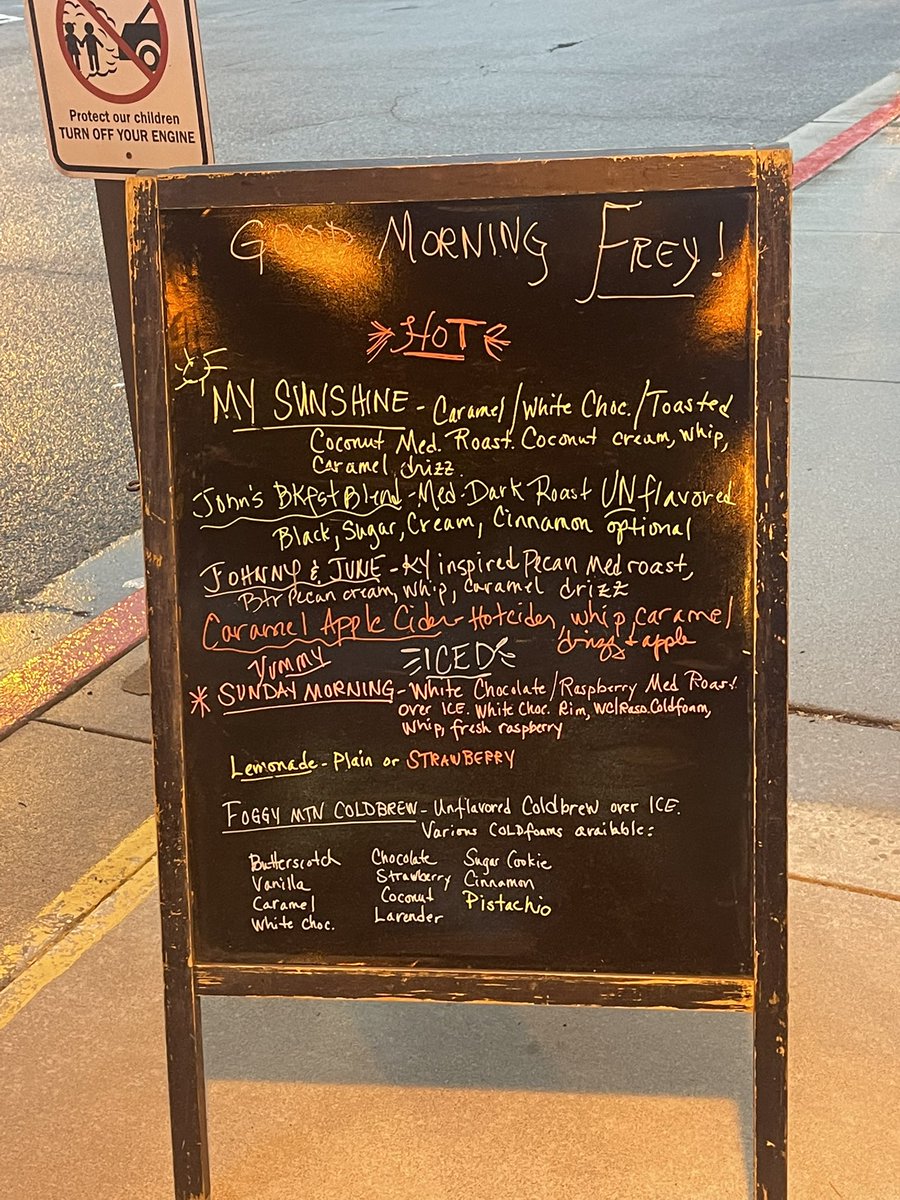 Protect our children
TURN OFF YOUR ENGINE
GOOD MORNING FREY!
HOT
MY SUNSHINE - Caramel/White Choc./Toasted
Coconut Med. Roast. Coconut cream, whip,
Caramel drizz.
John's Bkfst Blend - Med-Dark Roast UNflavored
Black, Sugar, Cream, Cinnamon optional
JOHNNY & JUNE - KY inspired Pecan Med roast,
Btr Pecan cream, whip, caramel drizz
Caramel Apple Cider - Hot cider, whip, caramel
drizz + apple
Yummy
ICED
* SUNDAY MORNING - White Chocolate/Raspberry Med Roast
over ICE. White Choc. Rim, WC/Rasp. Coldfoam,
Whip, fresh raspberry
Lemonade - Plain or STRAWBERRY
FOGGY MTN COLDBREW - Unflavored Coldbrew over ICE.
Various COLDfoams available:
Butterscotch Chocolate Sugar Cookie
Vanilla Strawberry Cinnamon
Caramel Coconut Pistachio
White Choc. Lavender